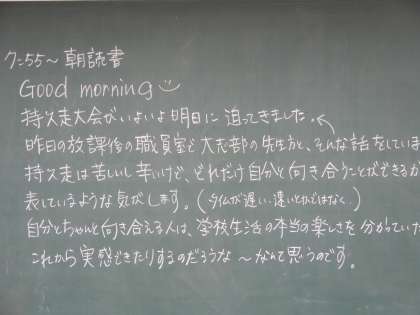 7:55～朝読書
Good morning
持久走大会がいよいよ明日に迫ってきました。
昨日の放課後の職員室で大志部の先生方と、そんな話をしていま
持久走は苦しいし辛いけど、どれだけ自分と向き合うことができるか
表しているような気がします。(タイムが遅い・速いとかではなく)
自分とちゃんと向き合える人は、学校生活の本当の楽しさを分かっていた
これから実感できたりするのだろうな～なんて思うのです。